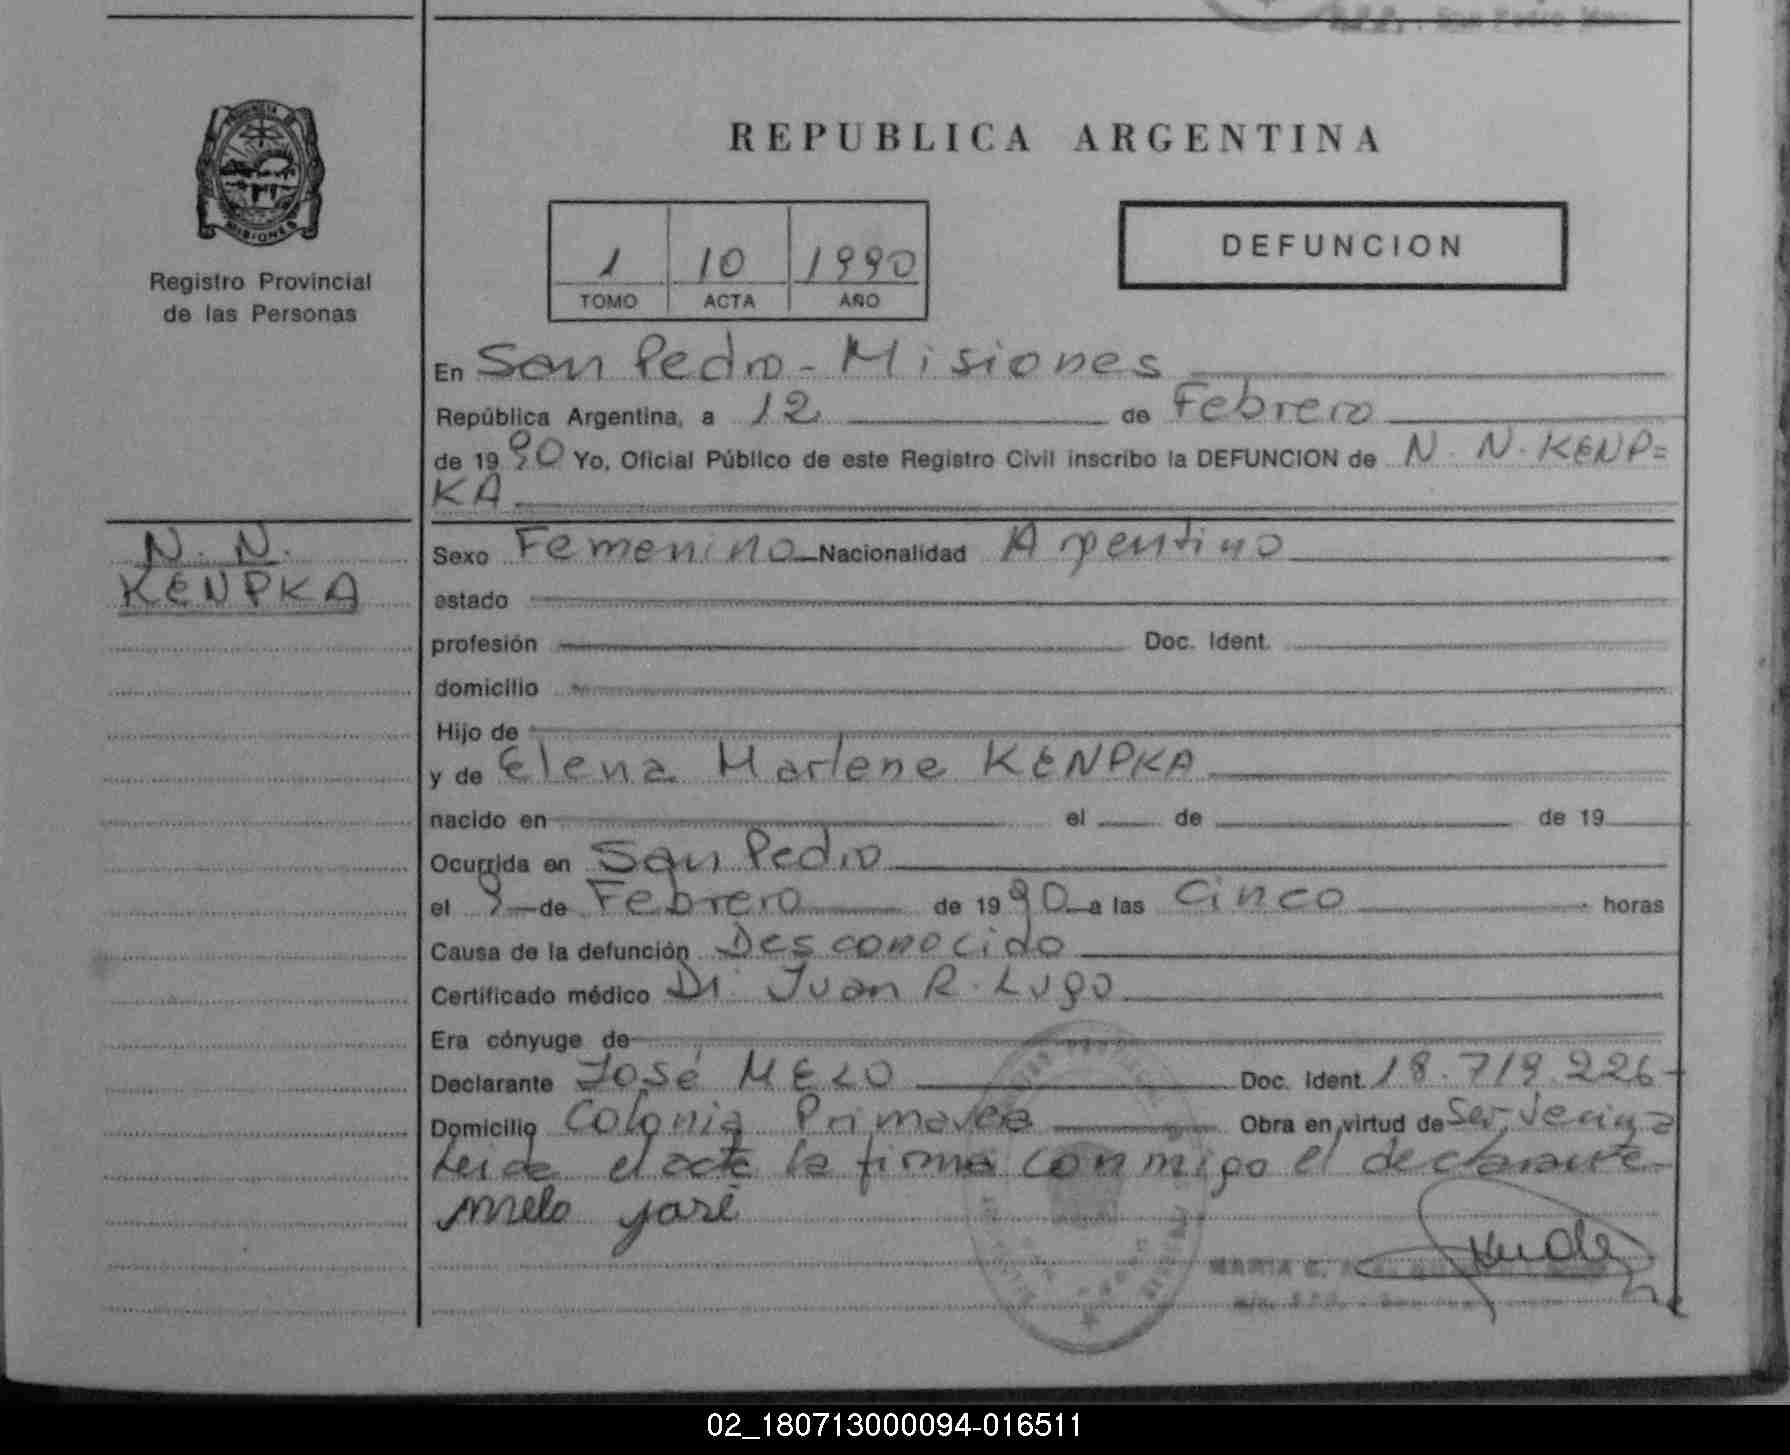 REPUBLICA ARGENTINA
PROVINCIA DE
MISIONES
Registro Provincial
de las Personas
1 10 1990
TOMO ACTA AÑO
DEFUNCION
En San Pedro - Misiones
República Argentina, a 12 de Febrero
de 1990 Yo, Oficial Público de este Registro Civil inscribo la DEFUNCION de N. N. KENP=
KA
N. N.
KENPKA
Sexo Femenino Nacionalidad Argentino
estado
profesión Doc. Ident.
domicilio
Hijo de
y de Elena Marlene KENPKA
nacido en el de de 19
Ocurrida en San Pedro
el 9 de Febrero de 1990 a las Cinco horas
Causa de la defunción Desconocido
Certificado médico Dr. Juan R. Lugo
Era cónyuge de
Declarante José MELO Doc. Ident. 18.719.226
Domicilio Colonia Primavera Obra en virtud de
Leida el acta la firma conmigo el declarante
melo josé
MARIA
02_180713000094-016511